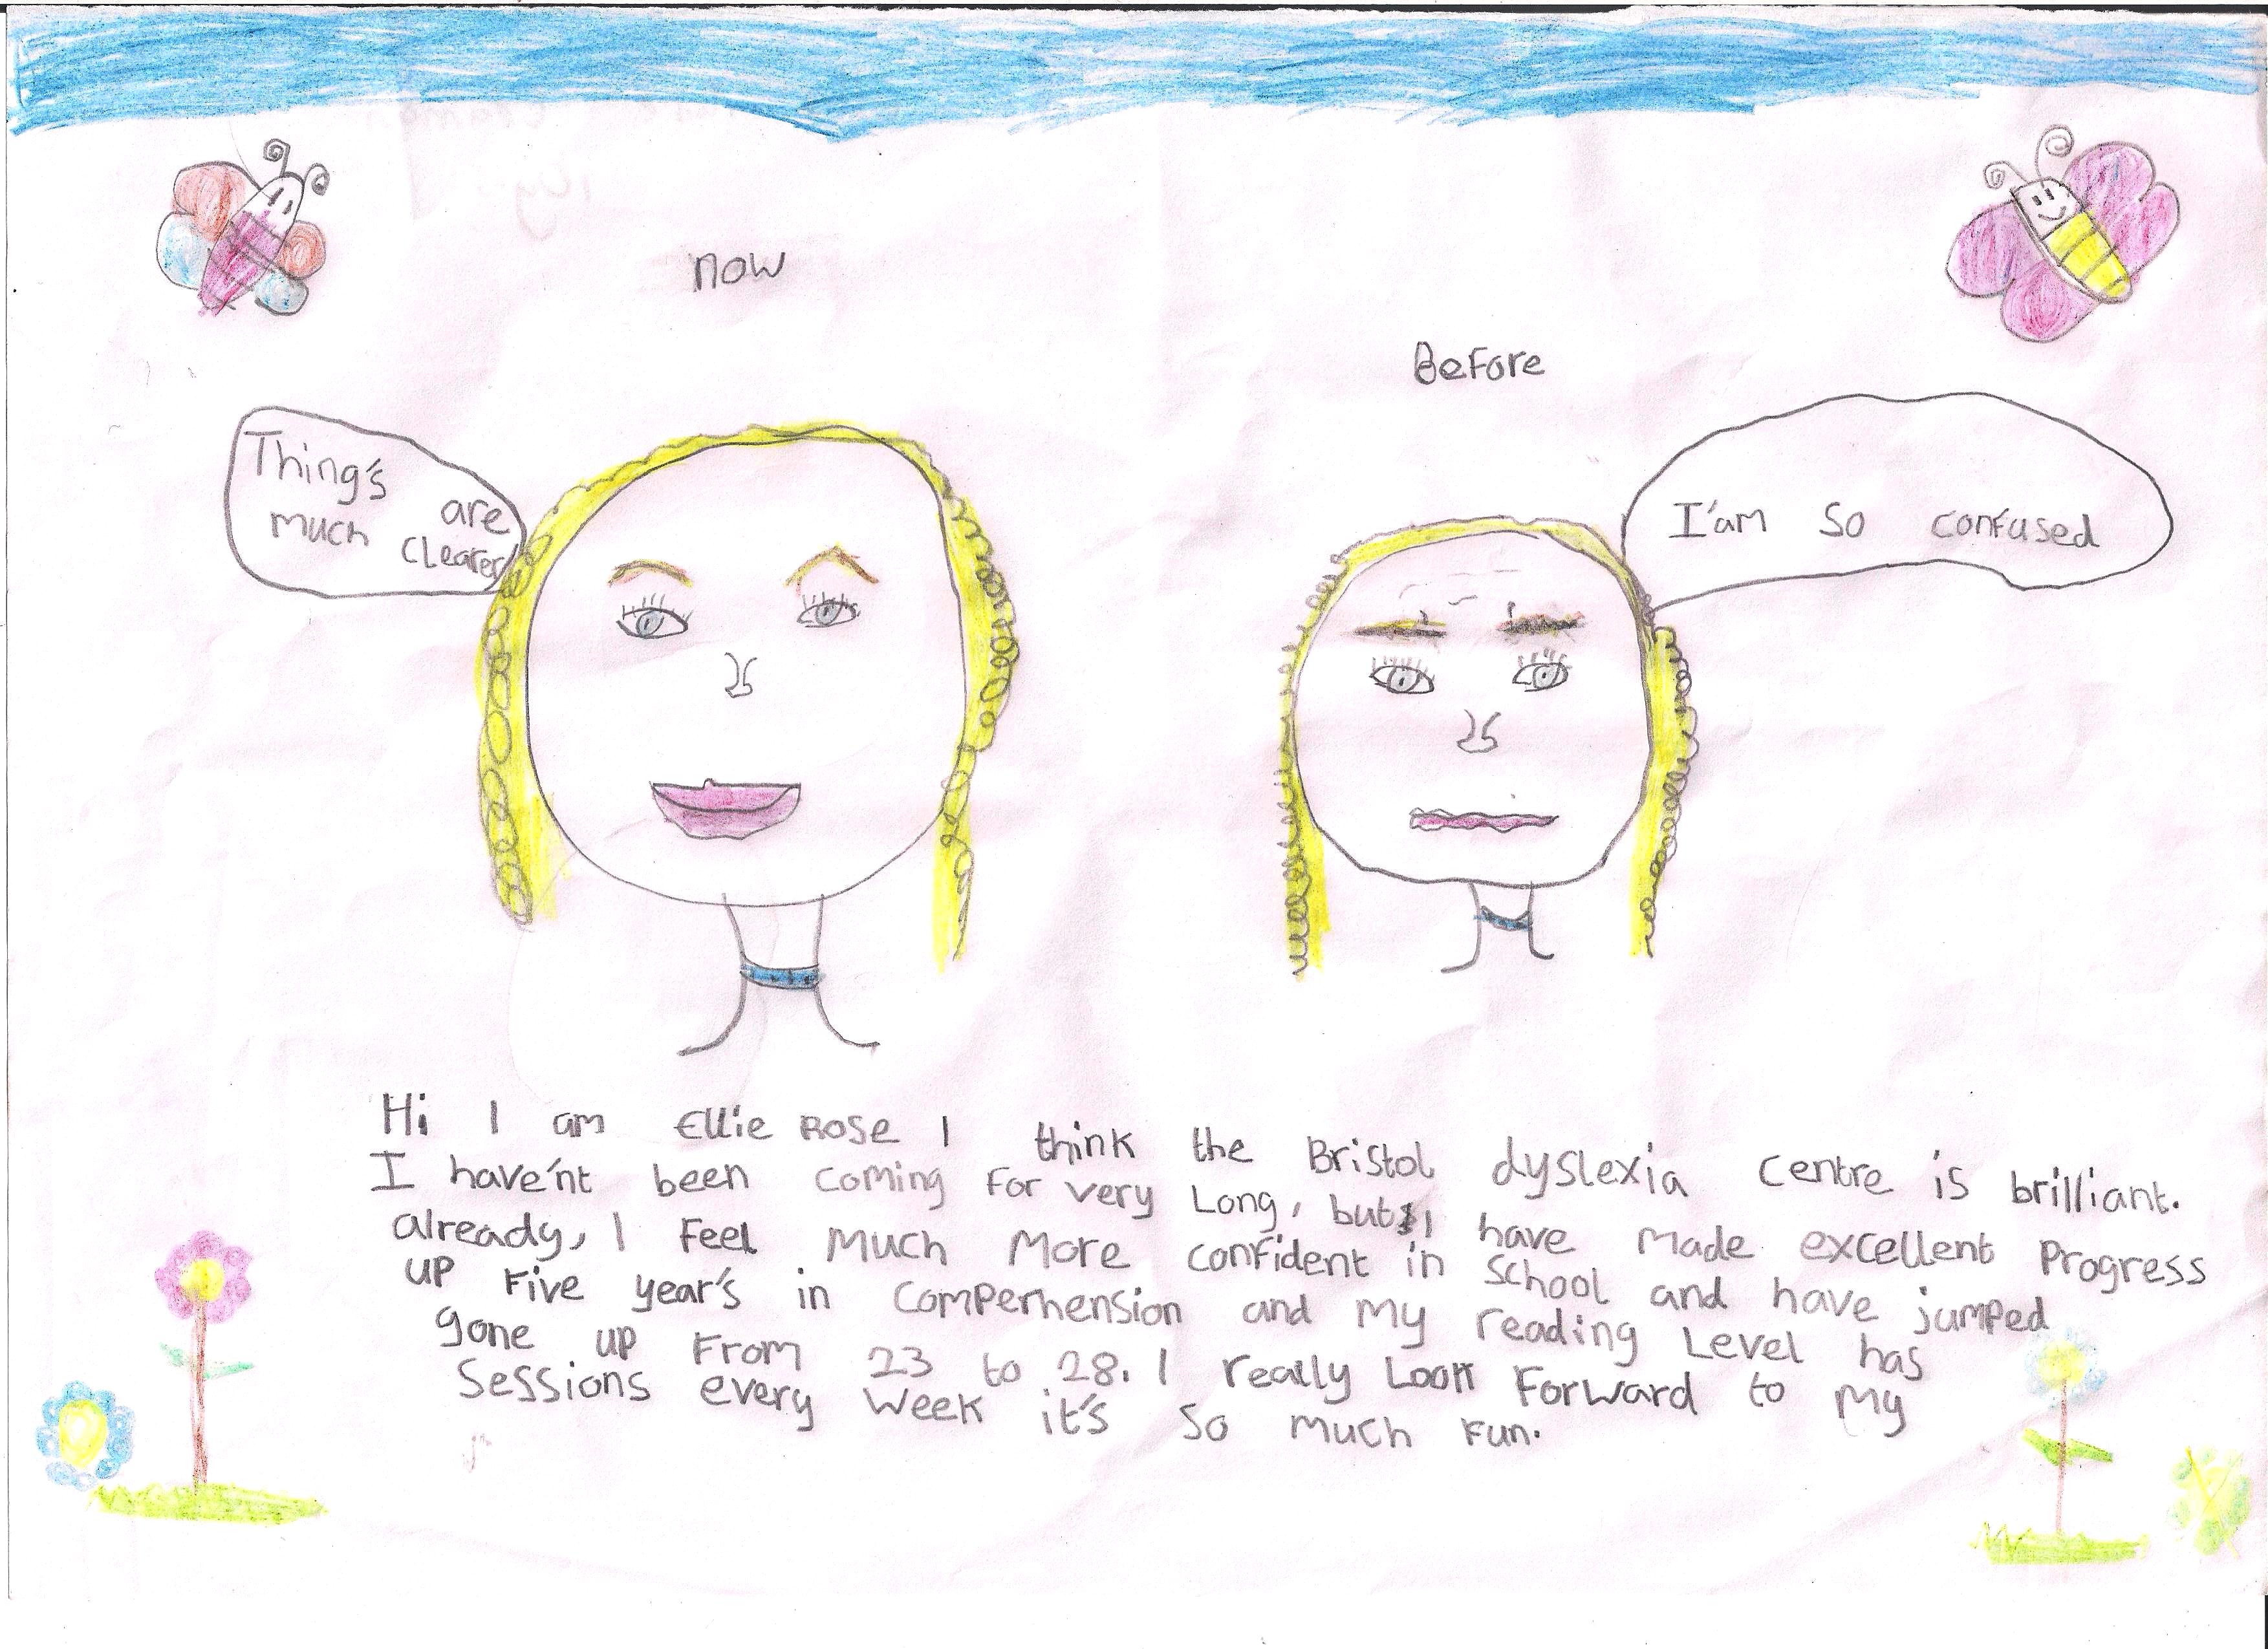 now
Before
Thing's
are
much clearer
I'am so confused
Hi I am Ellie Rose I think the Bristol dyslexia centre is brilliant.
I have'nt been coming for very long, but I have made excellent progress
already, I feel much more confident in school and have jumped
up five year's in comperhension and my reading level has
gone up from 23 to 28. I really look forward to my
sessions every week it's so much fun.